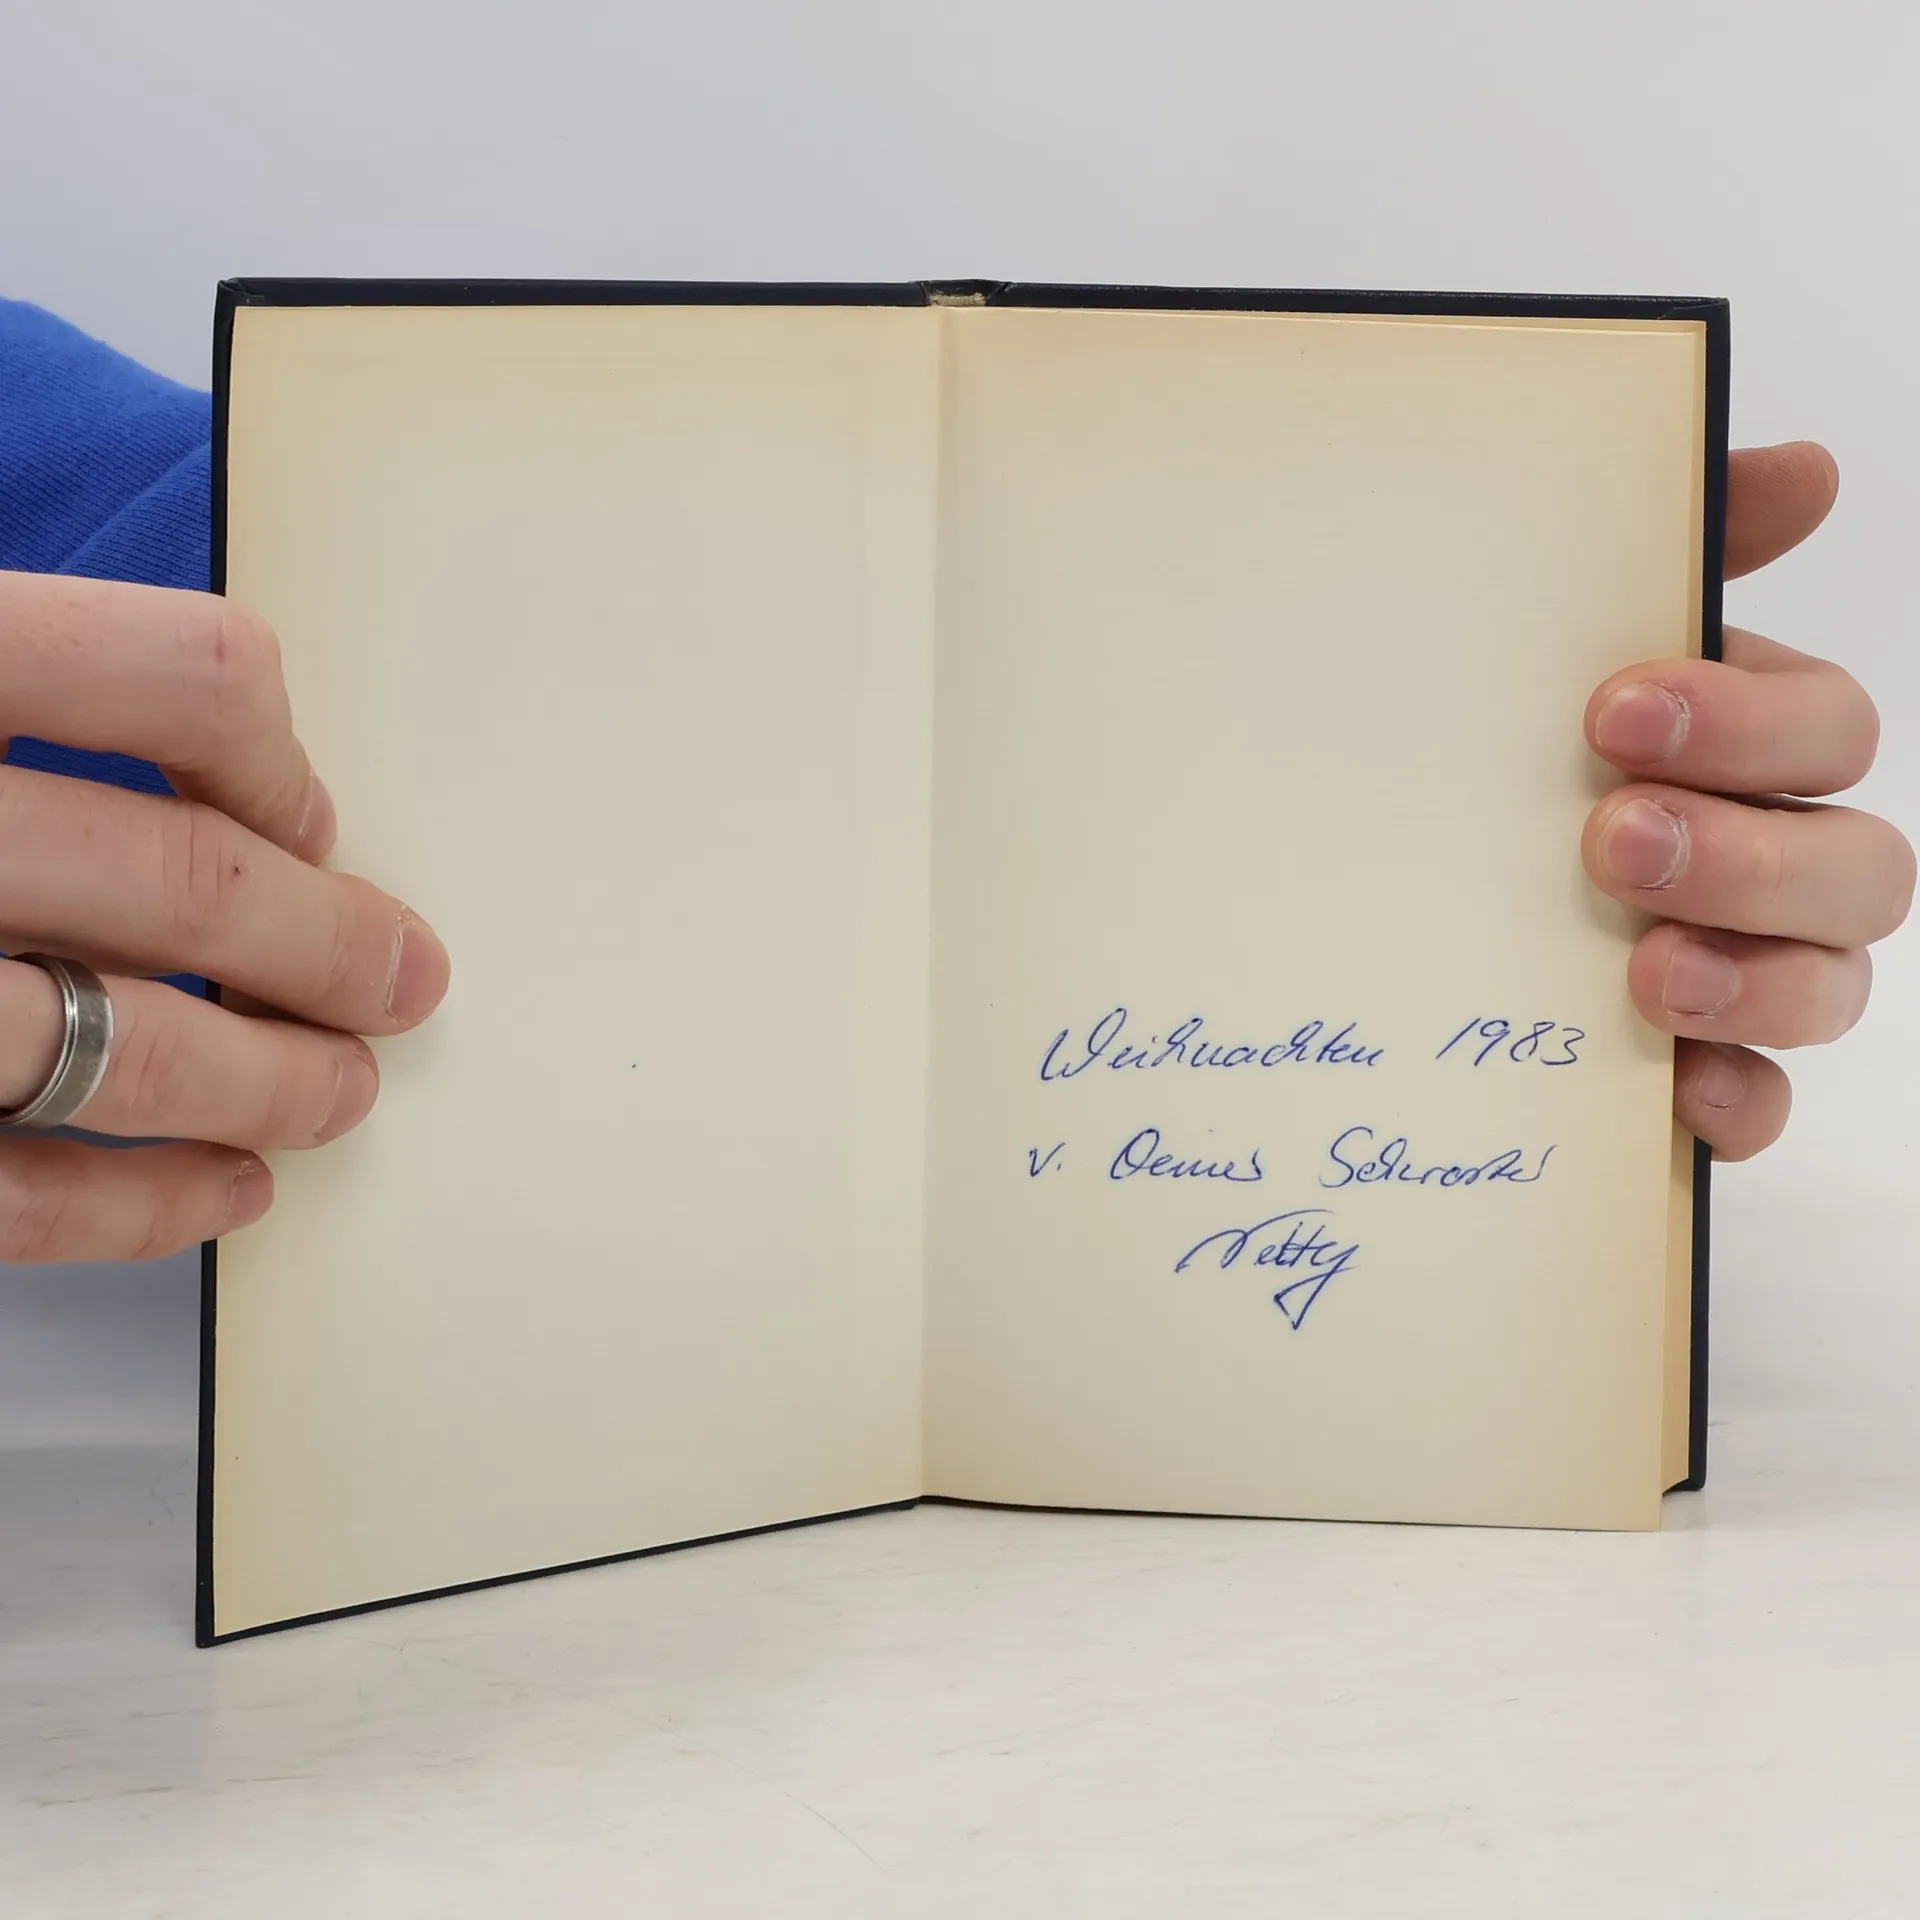 Weihnachten 1983
v. Deiner Schwester
Netty